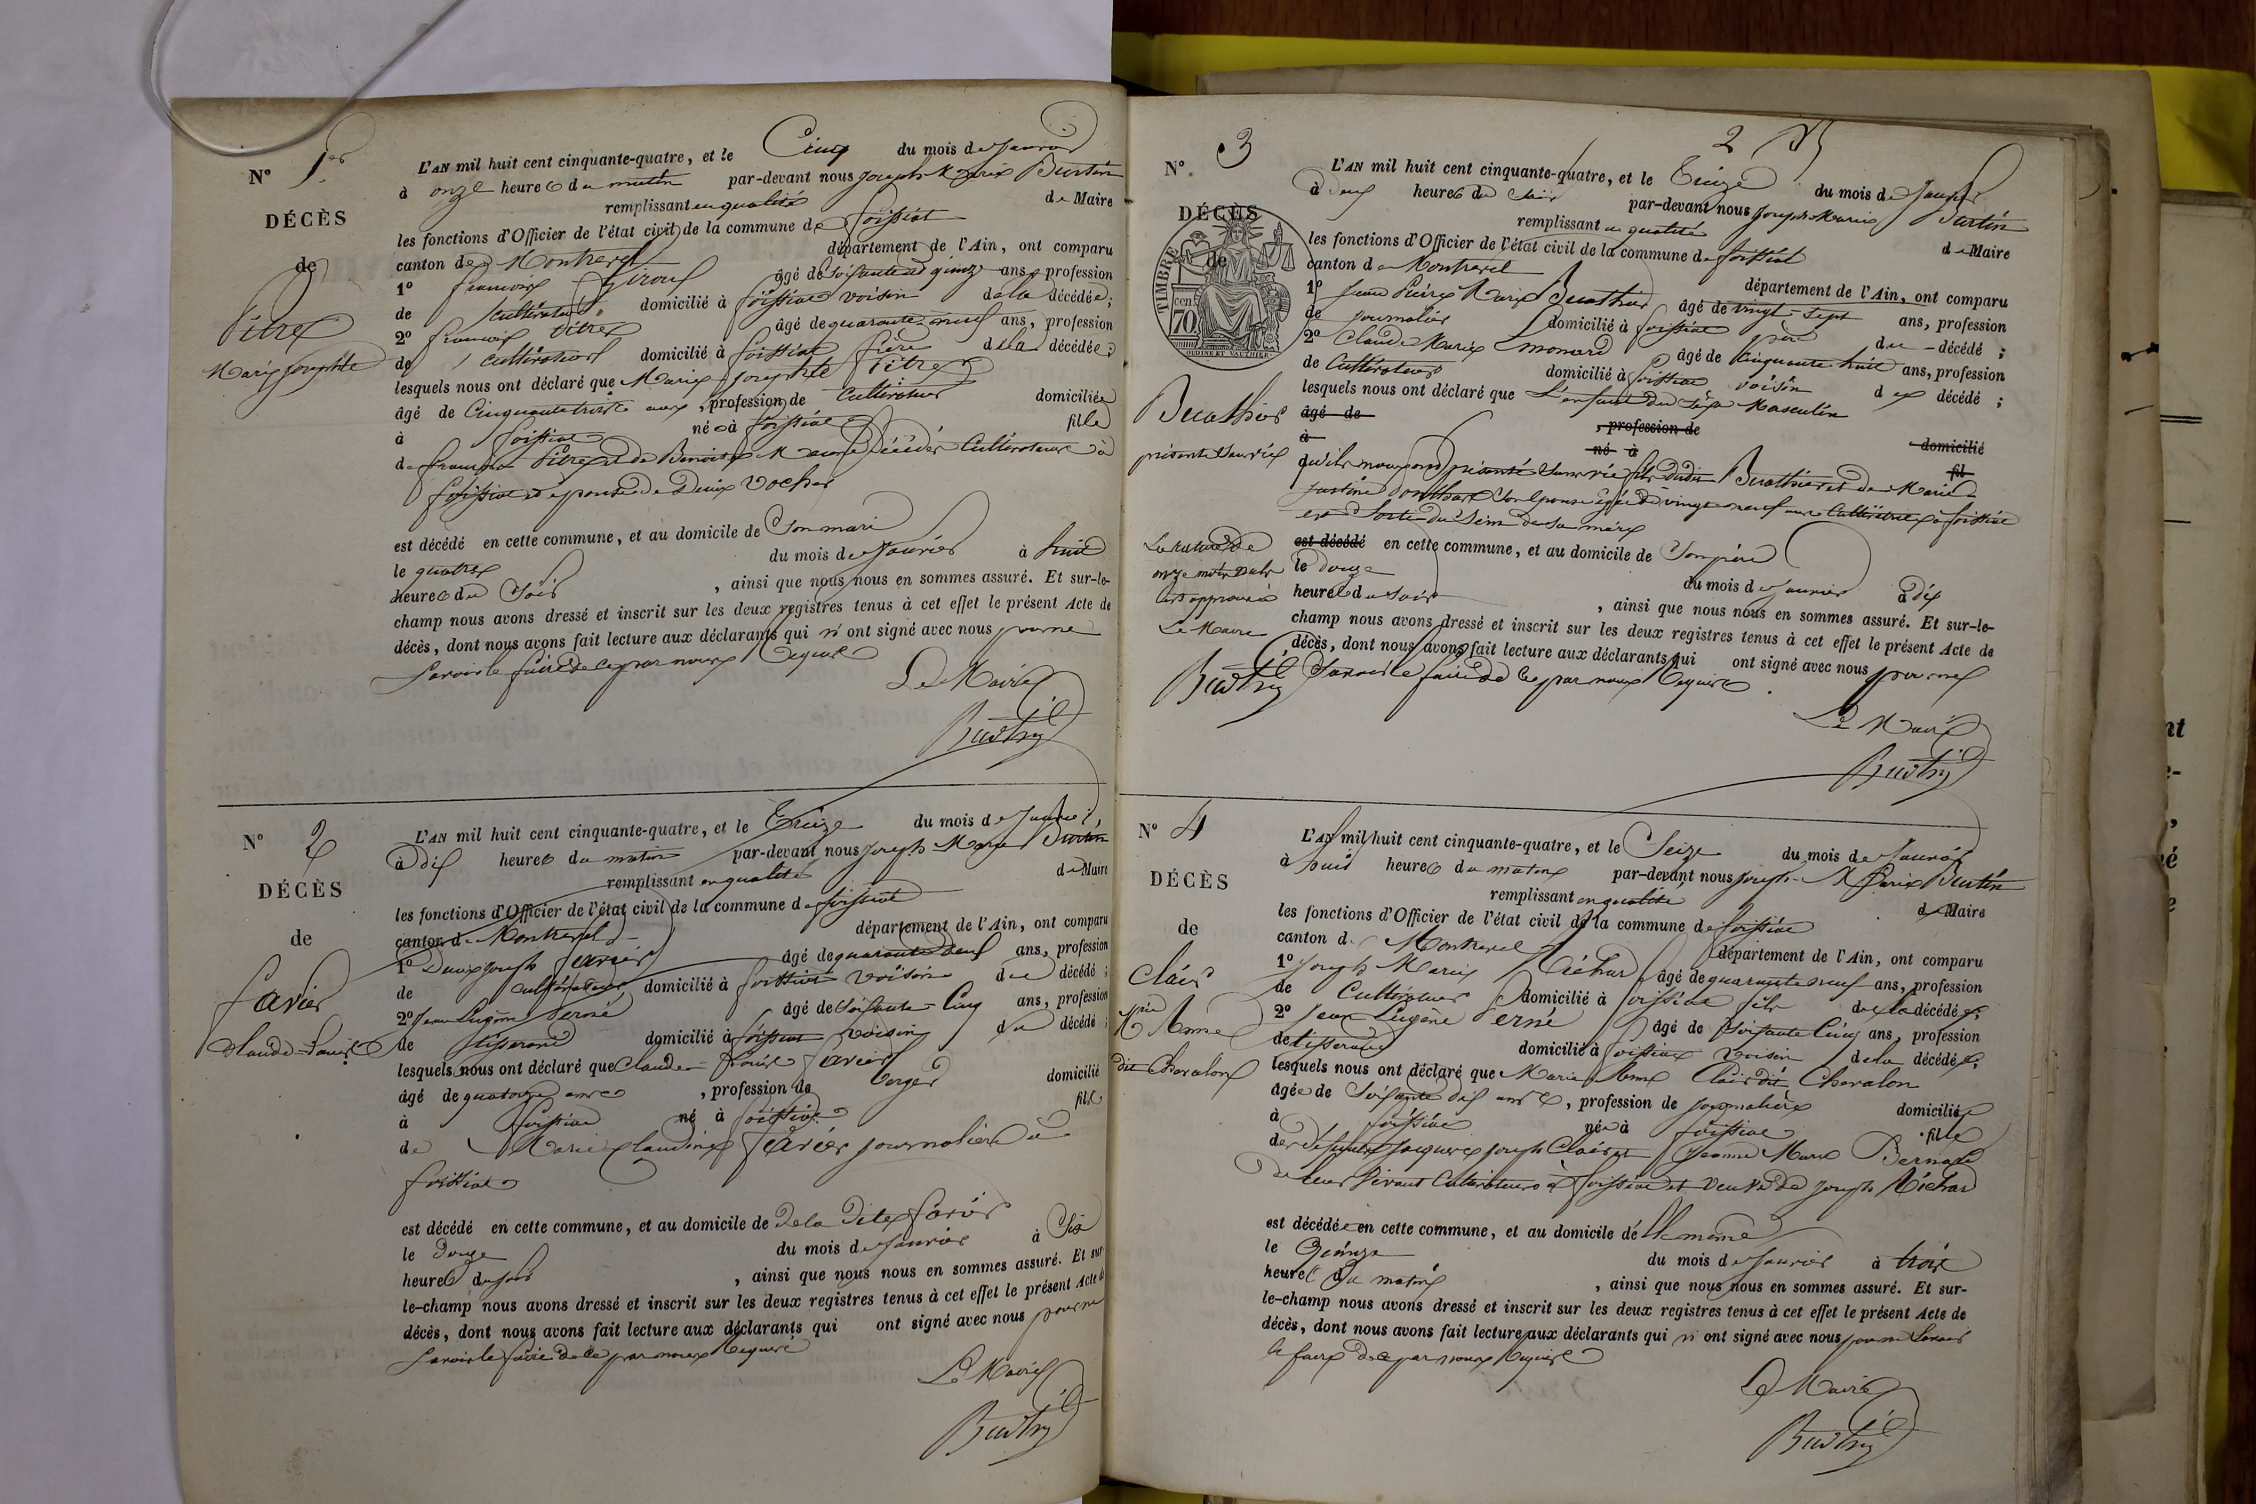 N° 1er
DÉCÈS
de
Vitre
Marie Josephte
L'AN mil huit cent cinquante-quatre, et le Cinq du mois de Janvier
à onze heures du matin par-devant nous Joseph Marie Burtin
remplissant en qualité de Maire
les fonctions d'Officier de l'état civil de la commune de foissiat
canton de Montrevel département de l'Ain, ont comparu
1° françois âgé de Soixante et quinze ans, profession
de Cultivateur domicilié à foissiat voisin de la décédée;
2° françois Vitre âgé de quarante neuf ans, profession
de Cultivateur domicilié à foissiat frère de la décédée;
lesquels nous ont déclaré que Marie Josephte Vitre
âgé de Cinquante trois ans, profession de Cultivateur domiciliée
à foissiat née à foissiat fille
de françois Vitre et de Benoite décédés Cultivateurs à
foissiat et épouse de Denis Vocher
est décédé en cette commune, et au domicile de Son mari
le quatre du mois de Janvier à huit
heures du Soir, ainsi que nous nous en sommes assuré. Et sur-le-
champ nous avons dressé et inscrit sur les deux registres tenus à cet effet le présent Acte de
décès, dont nous avons fait lecture aux déclarants qui n' ont signé avec nous pour ne
Savoir le faire de ce par nous Requis
Le Maire
Burtin
N° 2
DÉCÈS
de
favier
Claude Louis
L'AN mil huit cent cinquante-quatre, et le Treize du mois de Janvier,
à Dix heures du matin par-devant nous Joseph Marie Burtin
remplissant en qualité de Maire
les fonctions d'Officier de l'état civil de la commune de foissiat
canton de Montrevel département de l'Ain, ont comparu
1° Denis Joseph favier âgé de quarante neuf ans, profession
de cultivateur domicilié à foissiat voisin du décédé;
2° Jean Eugène Perné âgé de Soixante-Cinq ans, profession
de tisserand domicilié à foissiat voisin du décédé;
lesquels nous ont déclaré que Claude Louis favier
âgé de quatorze ans, profession de berger domicilié
à foissiat né à foissiat fils
de Marie Claudine favier journalière à
foissiat
est décédé en cette commune, et au domicile de De la Dite favier
le Douze du mois de Janvier à Six
heures du soir, ainsi que nous nous en sommes assuré. Et sur
le-champ nous avons dressé et inscrit sur les deux registres tenus à cet effet le présent Acte de
décès, dont nous avons fait lecture aux déclarants qui ont signé avec nous pour ne
Savoir le faire de ce par nous Requis
Le Maire
Burtin
2
N° 3
DÉCÈS
de
TIMBRE
70 cen
Buathier
présenté Sans vie
L'AN mil huit cent cinquante-quatre, et le Treize du mois de Janvier
à deux heures du Soir par-devant nous Joseph Marie Burtin
remplissant en qualité de Maire
les fonctions d'Officier de l'état civil de la commune de foissiat
canton de Montrevel département de l'Ain, ont comparu
1° Jean Pierre Marie Buathier âgé de vingt-sept ans, profession
de journalier domicilié à foissiat père du décédé;
2° Claude Marie Monard âgé de Cinquante huit ans, profession
de Cultivateur domicilié à foissiat voisin du décédé;
lesquels nous ont déclaré que L'enfant du Sexe Masculin
âgé de, profession de domicilié
à né à fil
qu'ils nous ont présenté Sans vie fils dudit Buathier et de Marie
Justine Son épouse âgée de vingt neuf ans Cultivatrice à foissiat
est Sorti du Sein de Sa mère
est décédé en cette commune, et au domicile de Son père
le douze du mois de Janvier à dix
heures du soir, ainsi que nous nous en sommes assuré. Et sur-le-
champ nous avons dressé et inscrit sur les deux registres tenus à cet effet le présent Acte de
décès, dont nous avons fait lecture aux déclarants qui ont signé avec nous pour ne
Savoir le faire de ce par nous Requis.
La rature de
onze mots nuls
est approuvée
Le Maire
Burtin
Le Maire
Burtin
N° 4
DÉCÈS
de
Clair
Mie Anne
dit Chevalon
L'AN mil huit cent cinquante-quatre, et le Seize du mois de Janvier
à huit heures du matin par-devant nous Joseph Marie Burtin
remplissant en qualité de Maire
les fonctions d'Officier de l'état civil de la commune de foissiat
canton de Montrevel département de l'Ain, ont comparu
1° Joseph Marie Michard âgé de quarante neuf ans, profession
de Cultivateur domicilié à foissiat fils de la décédée;
2° Jean Eugène Perné âgé de Soixante Cinq ans, profession
de tisserand domicilié à foissiat voisin de la décédée;
lesquels nous ont déclaré que Marie Anne Clair dit Chevalon
âgée de Soixante dix ans, profession de journalière domiciliée
à foissiat née à foissiat fille
des défunts Jacques Joseph Clair et Jeanne Marie Bernard
de leur vivant Cultivateurs à foissiat et veuve de Joseph Michard
est décédée en cette commune, et au domicile de
le Quinze du mois de Janvier à trois
heures du matin, ainsi que nous nous en sommes assuré. Et sur-
le-champ nous avons dressé et inscrit sur les deux registres tenus à cet effet le présent Acte de
décès, dont nous avons fait lecture aux déclarants qui n' ont signé avec nous pour ne Savoir
le faire de ce par nous Requis
Le Maire
Burtin